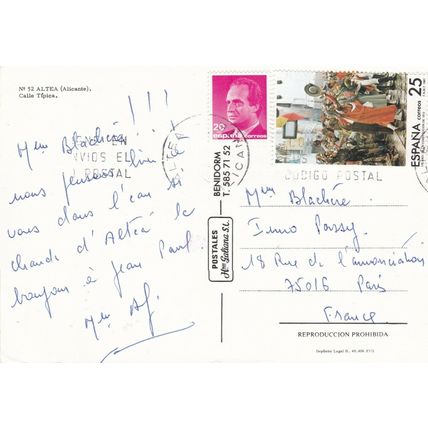 Nº 52 ALTEA (Alicante).
Calle Típica.
!!!
Mme Blachère
ENVIOS EL
POSTAL
nous pensons bien à
vous dans l'eau si
chaude d'Altéa le
bonjour à Jean Paul
Mme
POSTALES
Hnos Galiana S.L.
BENIDORM
T. 585 71 52
20
españa
correos
25
ESPAÑA
correos
CODIGO POSTAL
Mme Blachère
Immo Passy
18 Rue de l'annonciation
75016 Paris
France
REPRODUCCION PROHIBIDA
Depósito Legal B.